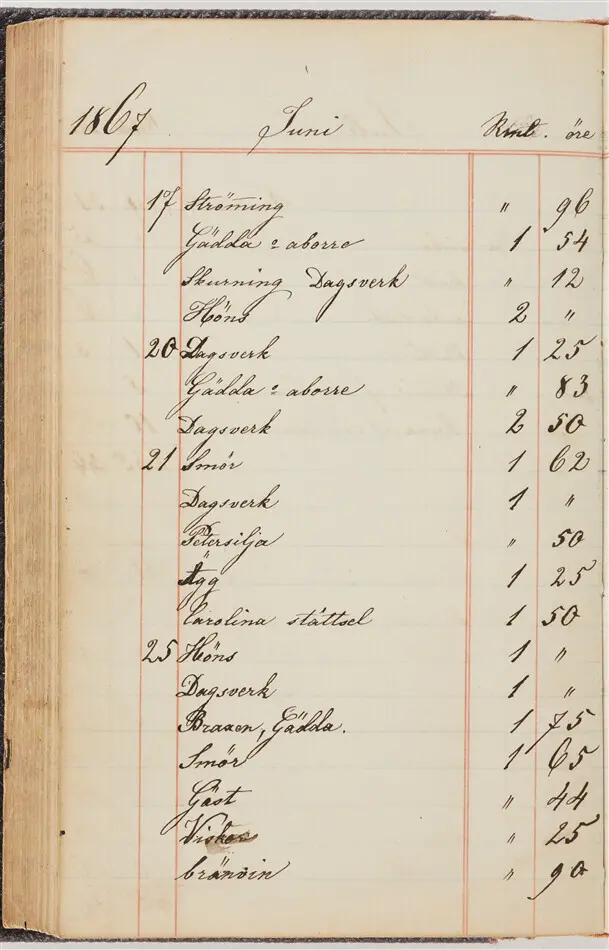 1867 Juni Rmt. öre
17 Strömming " 96
Gädda o aborre 1 54
Skurning Dagsverk " 12
Höns 2 "
20 Dagsverk 1 25
Gädda o aborre " 83
Dagsverk 2 50
21 Smör 1 62
Dagsverk 1 "
Petersilja " 50
Ägg 1 25
Carolina stättsel 1 50
25 Höns 1 "
Dagsverk 1 "
Braxen, Gädda. 1 75
Smör 1 65
Gäst " 44
Viskor " 25
bränvin " 90